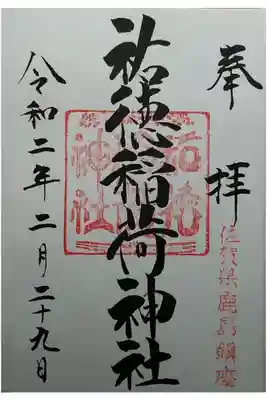 奉拝
佐賀県鹿島市鎮座
祐徳稲荷神社
令和二年二月二十九日